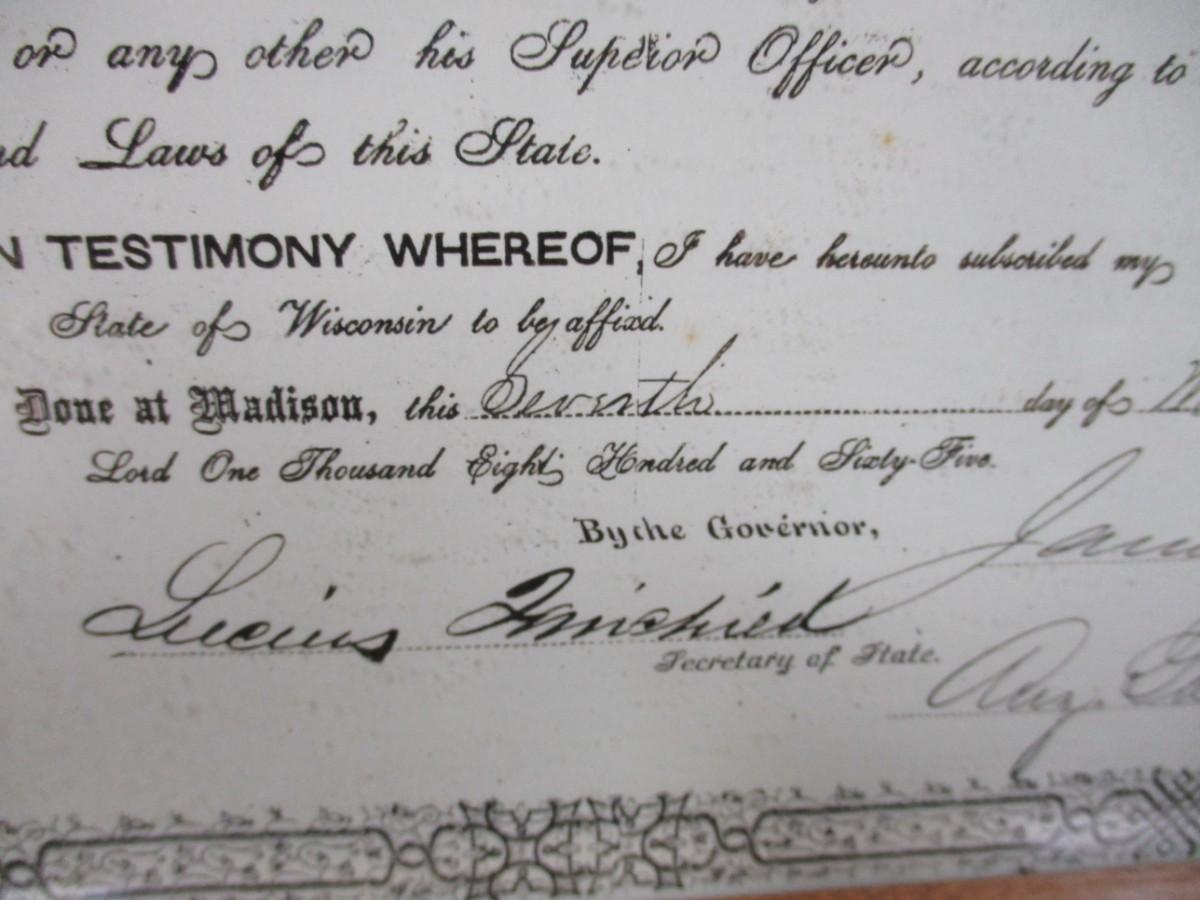 or any other his Superior Officer, according to
nd Laws of this State.
N TESTIMONY WHEREOF, I have hereunto subscribed my
State of Wisconsin to be affixd.
Done at Madison, this Seventh day of
Lord One Thousand Eight Hndred and Sixty-Five.
By the Governor,
Jam
Lucius Fairchild
Secretary of State.
Aug. Ga